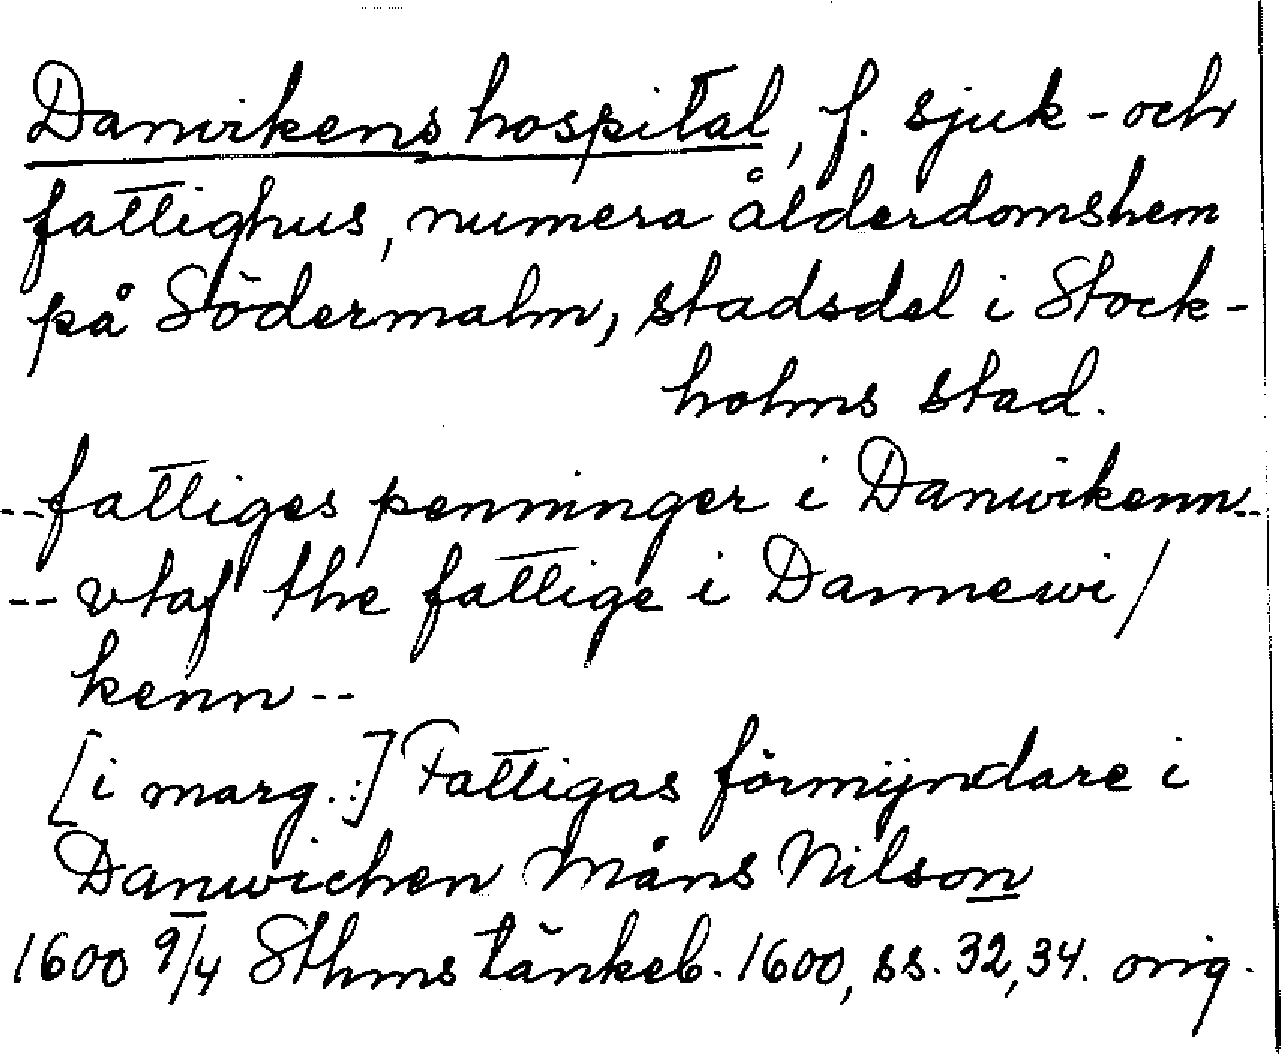 Danvikens hospital, f. sjuk- och
fattighus, numera ålderdomshem
på Södermalm, stadsdel i Stock-
holms stad.
-- fattiges penninger i Danwikenn --
-- vtaf the fattige i Dannewi/
kenn --
[i marg.:] Fattigas förmyndare i
Danwichen Måns Nilson
1600 9/4 Sthms tänkeb. 1600, ss. 32, 34. orig.